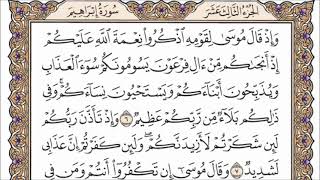 الجُزْءُ الثَّالِثَ عَشَرَ سُورَةُ إِبْرَاهِيم
وَإِذْ قَالَ مُوسَىٰ لِقَوْمِهِ ٱذْكُرُوا۟ نِعْمَةَ ٱللَّهِ عَلَيْكُمْ
إِذْ أَنجَىٰكُم مِّنْ ءَالِ فِرْعَوْنَ يَسُومُونَكُمْ سُوٓءَ ٱلْعَذَابِ
وَيُذَبِّحُونَ أَبْنَآءَكُمْ وَيَسْتَحْيُونَ نِسَآءَكُمْ ۚ وَفِى
ذَٰلِكُم بَلَآءٌ مِّن رَّبِّكُمْ عَظِيمٌ ٦ وَإِذْ تَأَذَّنَ رَبُّكُمْ
لَئِن شَكَرْتُمْ لَأَزِيدَنَّكُمْ ۖ وَلَئِن كَفَرْتُمْ إِنَّ عَذَابِى
لَشَدِيدٌ ٧ وَقَالَ مُوسَىٰٓ إِن تَكْفُرُوٓا۟ أَنتُمْ وَمَن فِى